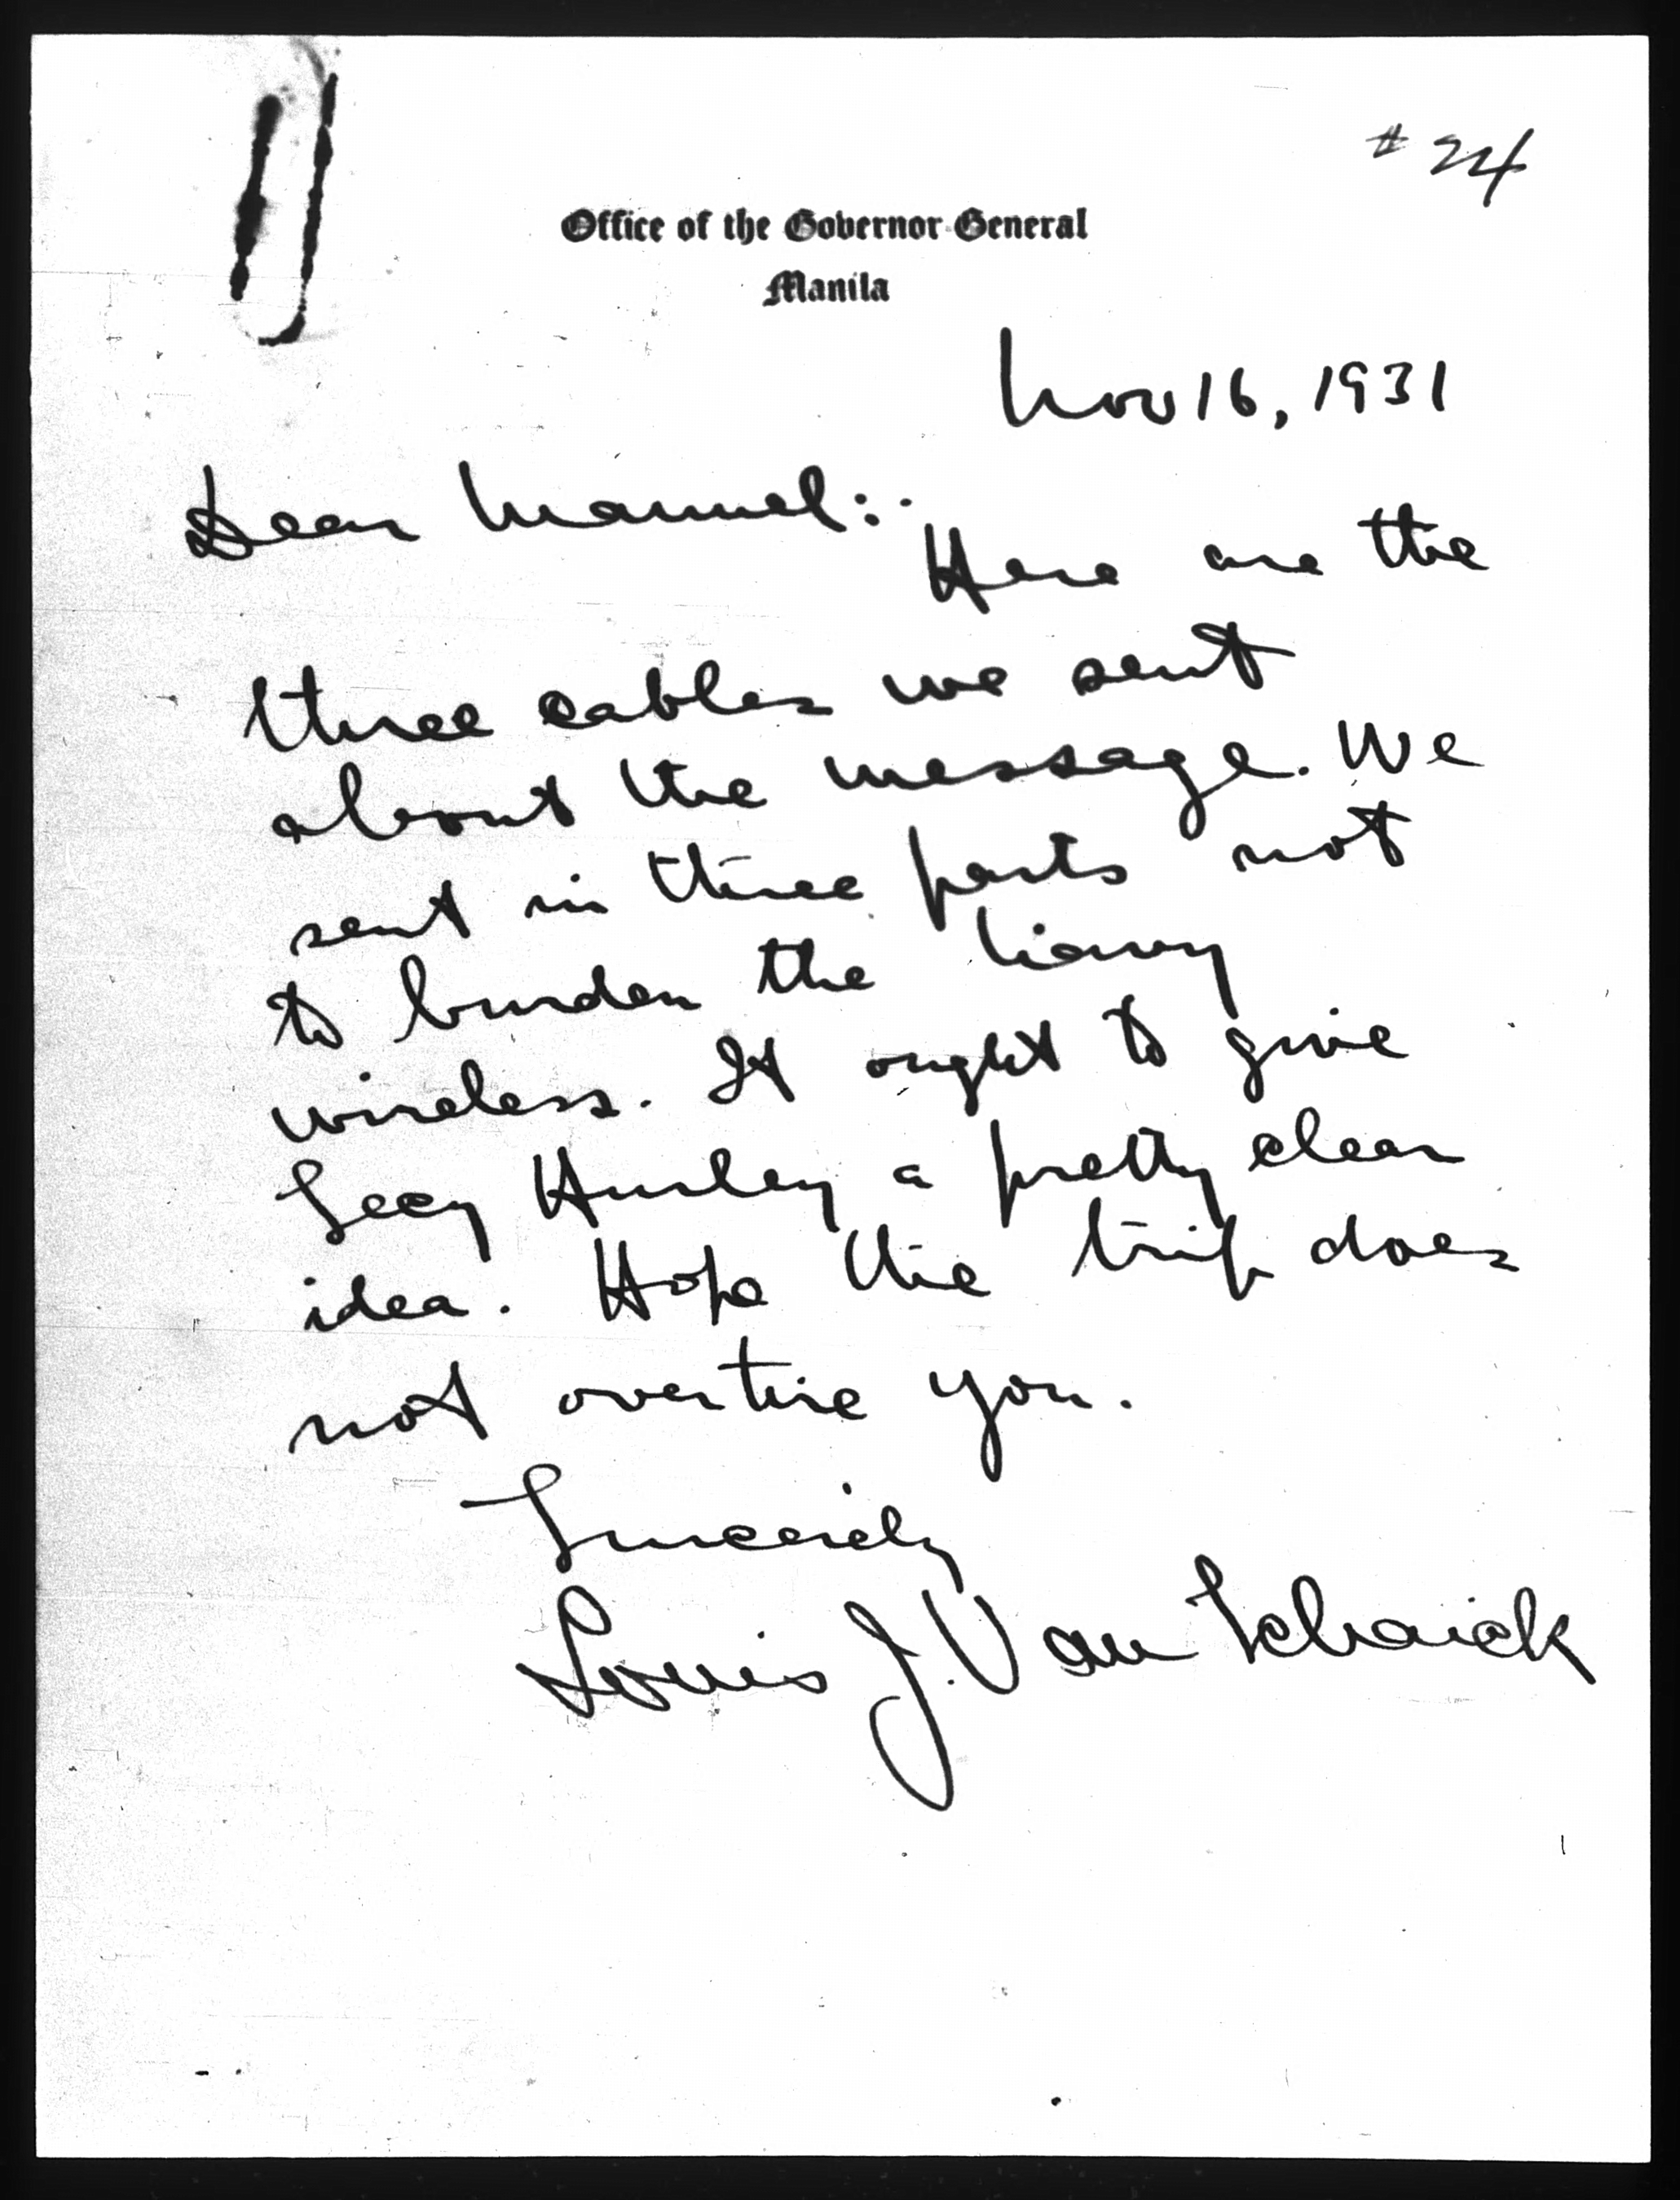 # 24
Office of the Governor-General
Manila
Nov 16, 1931
Dear Manuel:.
Here are the
three cables we sent
about the message. We
sent in three parts not
to burden the Navy
wireless. It ought to give
Secy Hurley a pretty clear
idea. Hope the trip does
not overtire you.
Sincerely
Louis J. Van Schaick